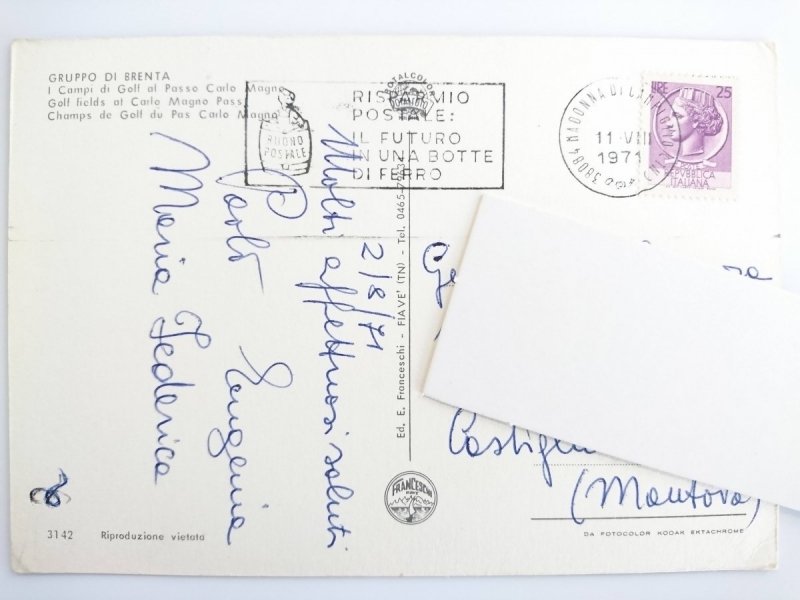 GRUPPO DI BRENTA
I Campi di Golf al Passo Carlo Magno
Golf fields at Carlo Magno Pass
Champs de Golf du Pas Carlo Magno
ROTALCOLOR
BUONO
POSTALE
RISPARMIO
POSTALE:
IL FUTURO
IN UNA BOTTE
DI FERRO
38084 MADONNA DI CAMPIGLIO
11·VIII
1971
LIRE 25
REPUBBLICA
ITALIANA
2/8/71
Molti affettuosi saluti
Paolo Eugenia
Maria Federica
Ed. E. Franceschi - FIAVE' (TN) - Tel. 0465-
FRANCESCHI
FIAVE
(Mantova)
3142 Riproduzione vietata
DA FOTOCOLOR KODAK EKTACHROME